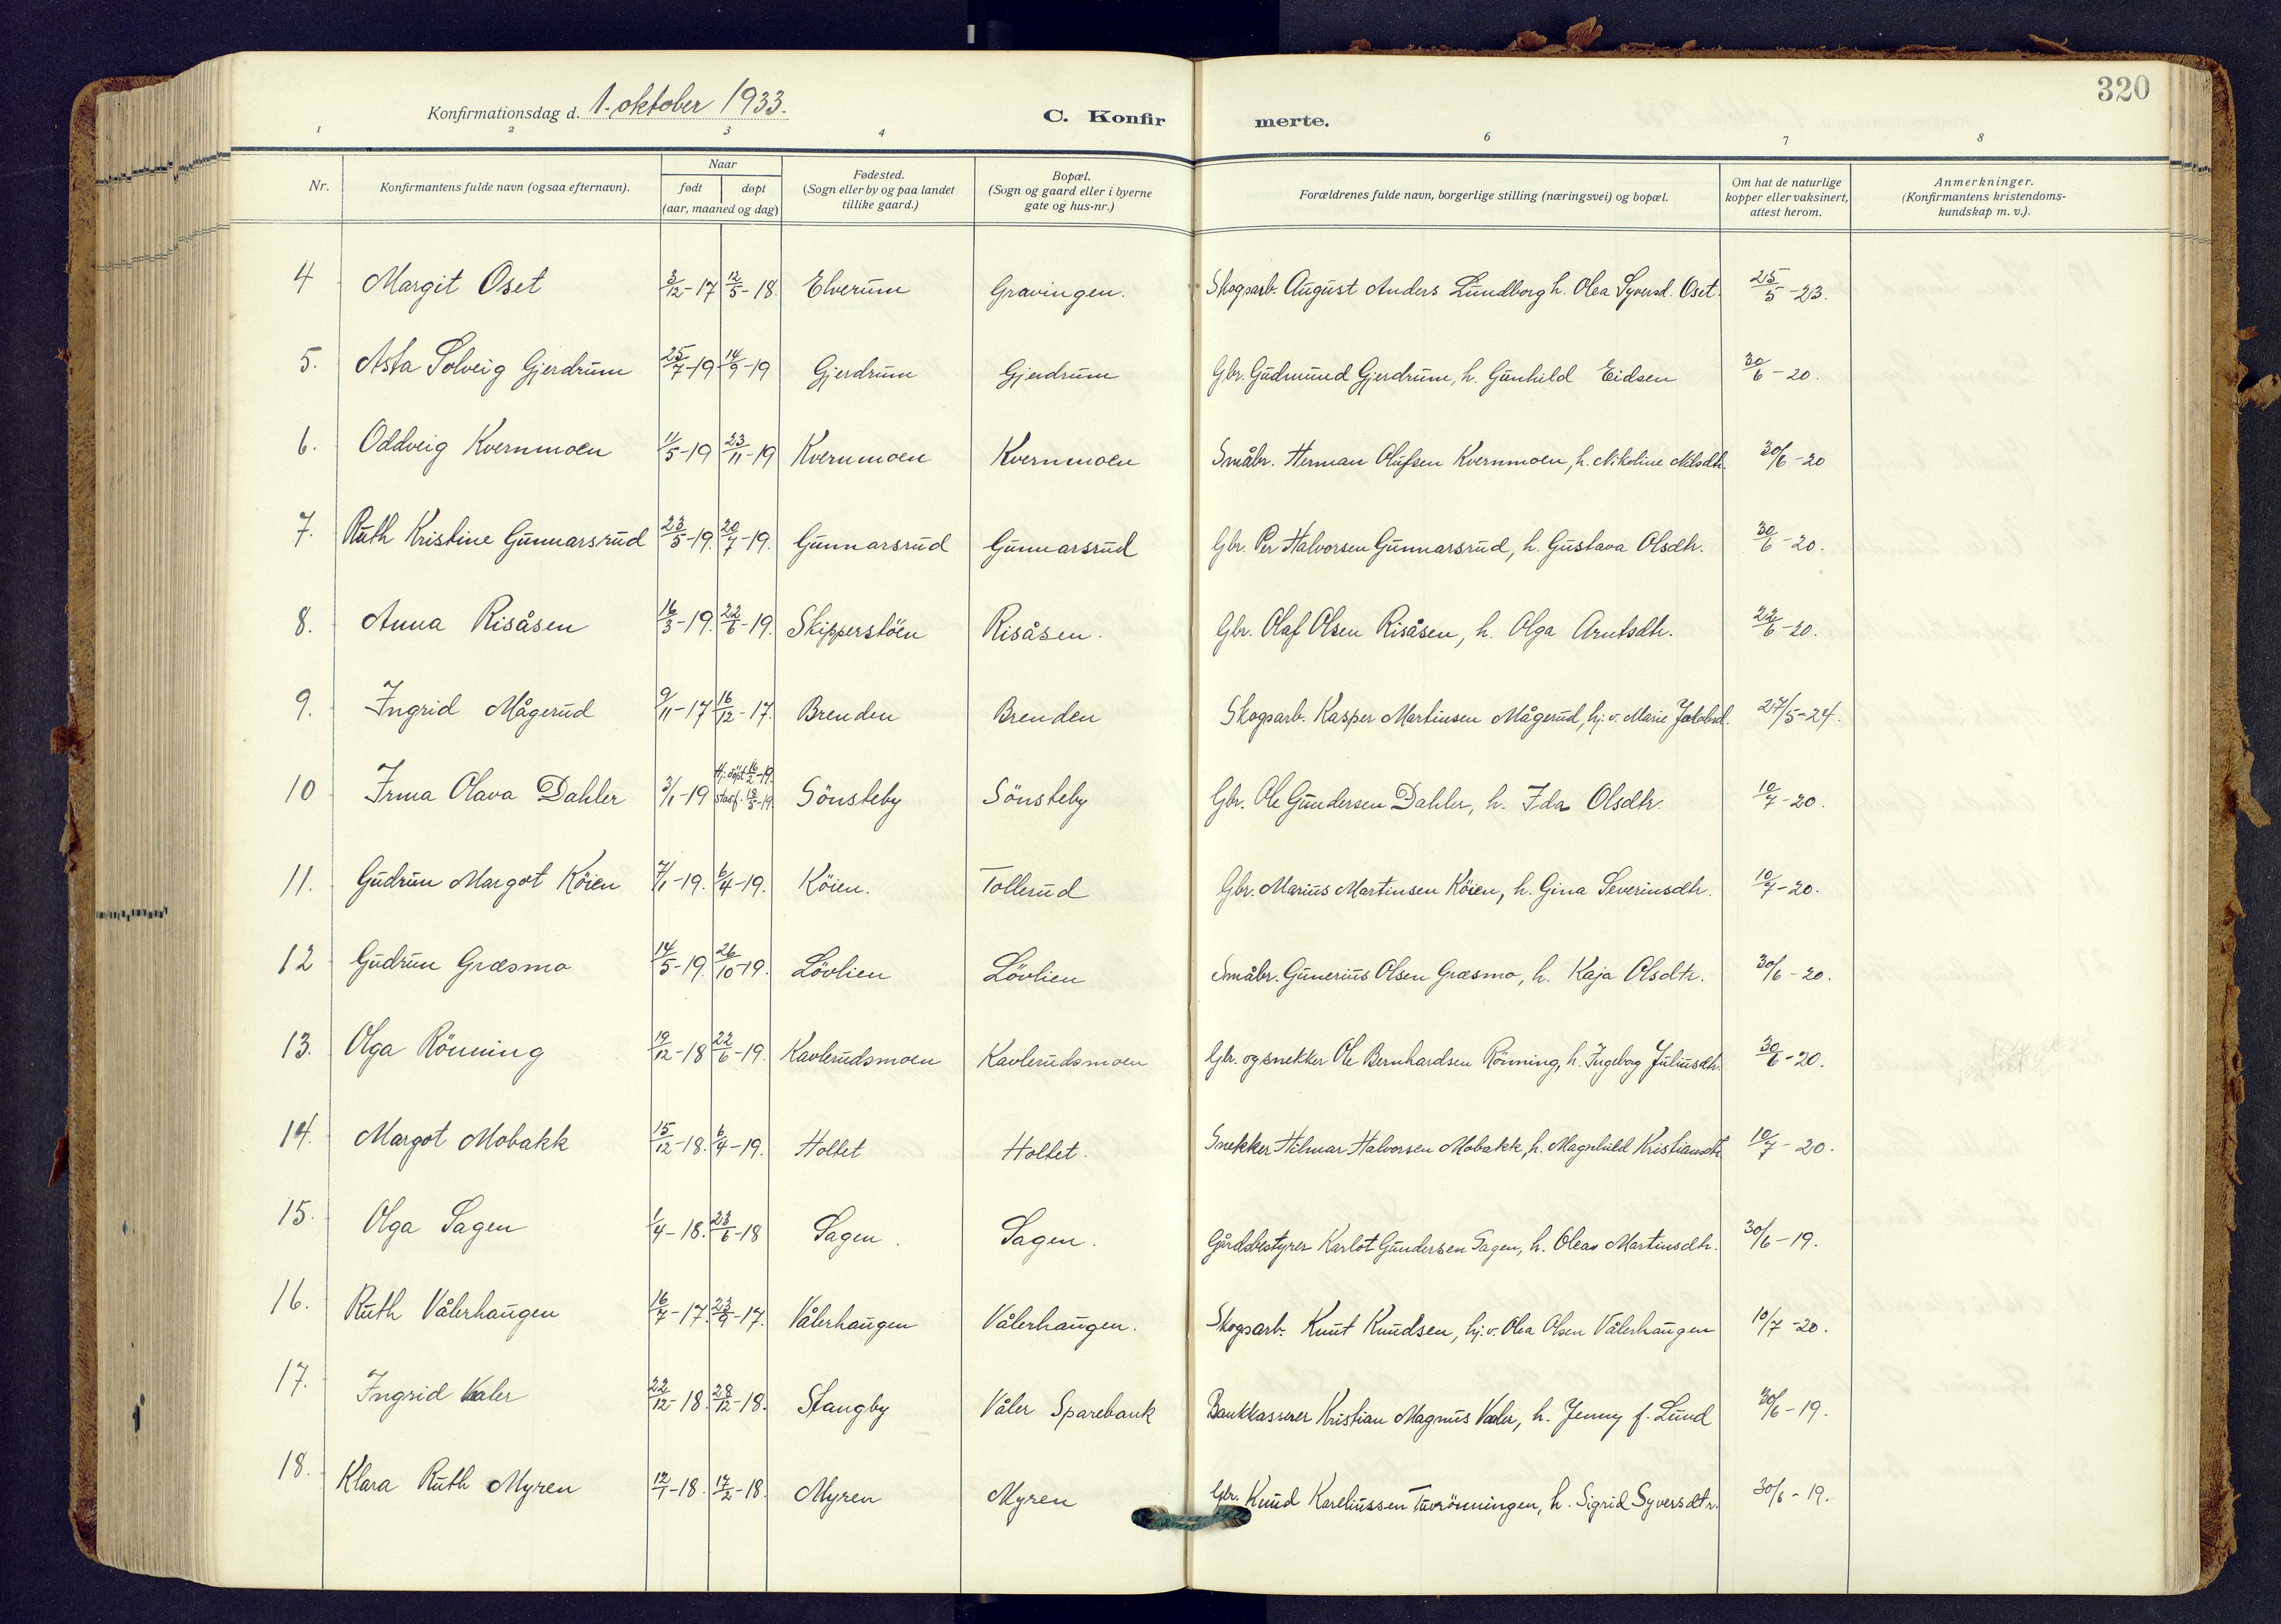 320
Konfirmationsdag d. 1. oktober 1933.
C. Konfirmerte.
1 2 3 4 6 7 8
Nr. | Konfirmantens fulde navn (ogsaa efternavn). | Naar født døpt (aar, maaned og dag) | Fødested. (Sogn eller by og paa landet tillike gaard.) | Bopæl. (Sogn og gaard eller i byerne gate og hus-nr.) | Forældrenes fulde navn, borgerlige stilling (næringsvei) og bopæl. | Om hat de naturlige kopper eller vaksinert, attest herom. | Anmerkninger. (Konfirmantens kristendoms-kundskap m. v.).
4 Margit Oset 3/12-17 12/5-18. Elverum Gravingen. Skogsarb. August Anders Lundborg h. Olea Syversd. Oset. 25/5-23.
5. Asta Solveig Gjerdrum 25/7-19 14/9-19 Gjerdrum Gjerdrum Gbr. Gudmund Gjerdrum, h. Gunhild Eidsen 30/6-20.
6. Oddveig Kvernmoen 11/5-19 23/11-19 Kvernmoen Kvernmoen Småbr. Herman Olufsen Kvernmoen, h. Nikoline Nilsdtr. 30/6-20
7. Ruth Kristine Gunnarsrud 23/5-19. 20/7-19. Gunnarsrud Gunnarsrud Gbr. Per Halvorsen Gunnarsrud, h. Gustava Olsdtr. 30/6-20.
8. Anna Risåsen 16/3-19. 22/6-19. Skipperstöen Risåsen. Gbr. Olaf Olsen Risåsen, h. Olga Arntsdtr. 22/6-20.
9. Ingrid Mågerud 9/11-17 16/12-17. Brenden Brenden Skogsarb. Kasper Martinsen Mågerud, hj. v. Marie Jakobsd. 27/5-24.
10 Irma Olava Dahler 3/1-19 Hj: döpt 16/2-19. stadf. 18/5-19 Sönsteby Sönsteby Gbr. Ole Gundersen Dahler, h. Ida Olsdtr. 10/7-20.
11. Gudrun Margot Köien 7/1-19. 6/4-19. Köien. Tollerud Gbr. Marius Martinsen Köien, h. Gina Severinsdtr. 10/7-20.
12 Gudrun Græsmo 14/5-19. 26/10-19. Lövlien Lövlien Småbr. Gunerius Olsen Græsmo, h. Kaja Olsdtr. 30/6-20.
13. Olga Rönning 19/12-18 22/6-19. Kavlerudsmoen Kavlerudsmoen Gbr. og snekker Ole Bernhardsen Rönning, h. Ingebog Juliusdtr. 30/6-20.
14. Margot Mobakk 15/12-18. 6/4-19. Holtet Holtet. Snekker Hilmar Halvorsen Mobakk, h. Magnhild Kristiansdtr. 10/7-20.
15. Olga Sagen 1/4-18. 23/6-18 Sagen. Sagen. Gårdsbestyrer Karlot Gundersen Sagen, h. Oleas Martinsdtr. 30/6-19.
16. Ruth Vålerhaugen 16/7-17. 23/9-17. Vålerhaugen Vålerhaugen. Skogsarb. Knut Knudsen, hj. v. Olea Olsen Vålerhaugen 10/7-20.
17. Ingrid Vaaler 22/12-18. 28/12-18. Stangby Våler Sparebank Bankkasserer Kristian Magnus Vaaler, h. Jenny f. Lund 30/6-19.
18. Klara Ruth Myren 12/1-18. 17/2-18. Myren Myren Gbr. Knud Kareliussen Tuvrönningen, h. Sigrid Syversdtr. 30/6-19.